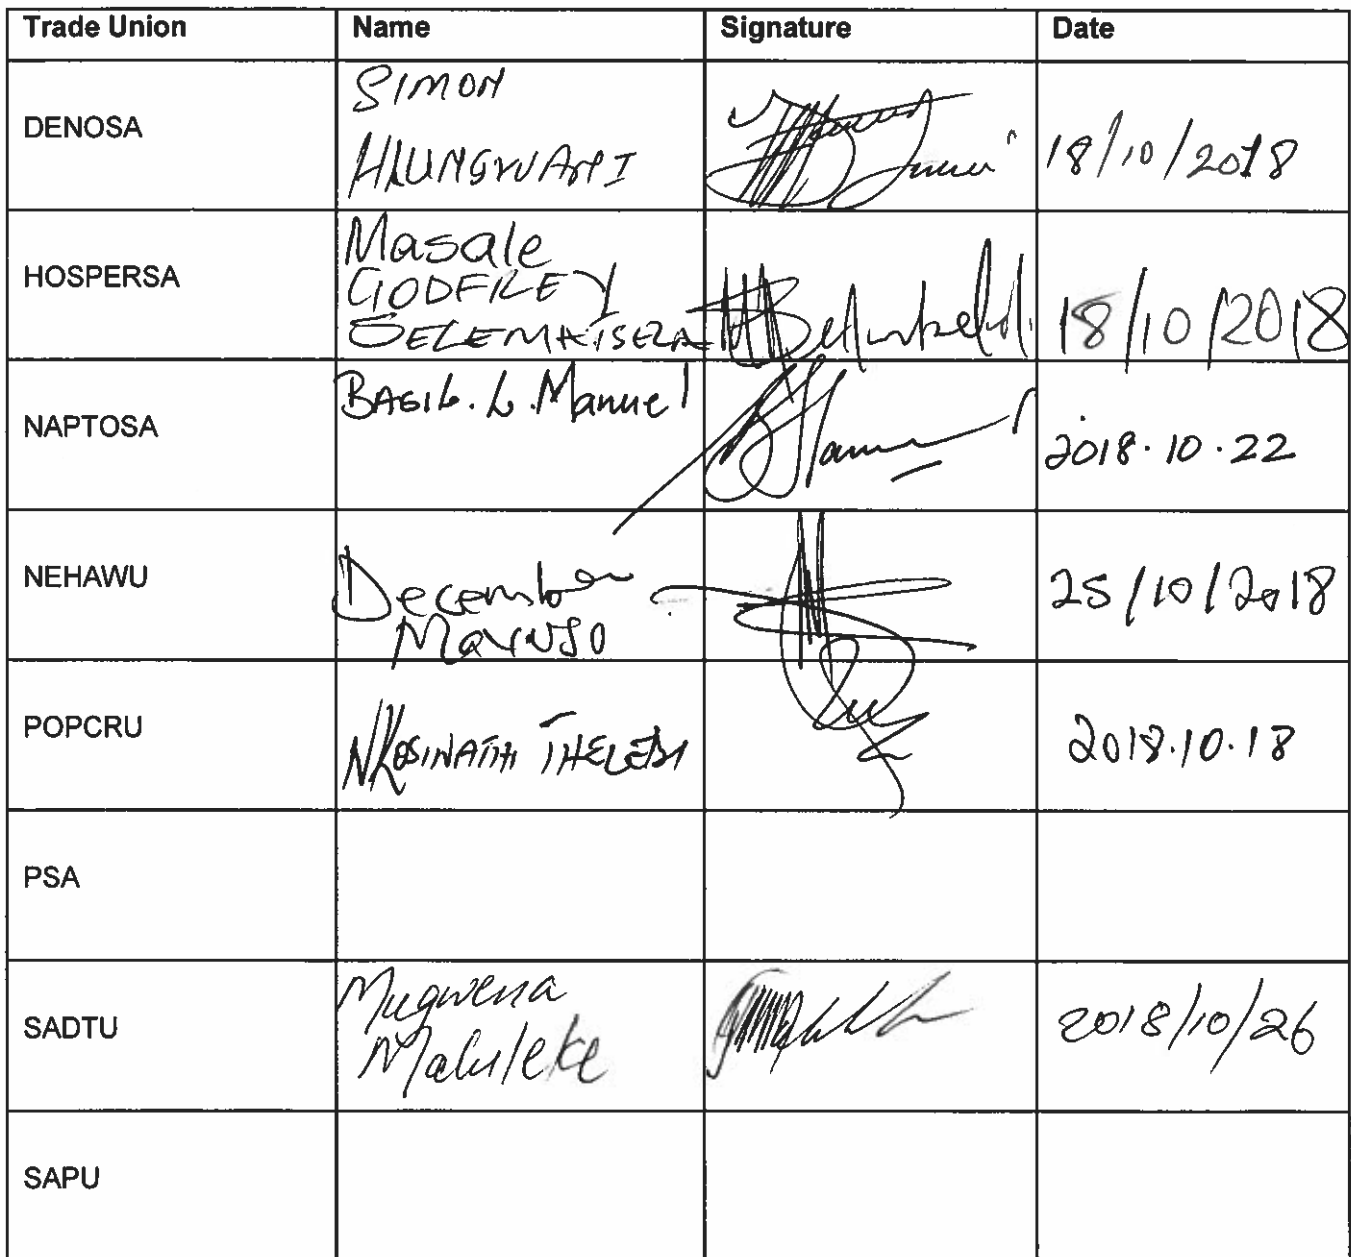 Trade Union Name Signature Date
DENOSA SIMON
HLUNGWANI 18/10/2018
HOSPERSA Masale
GODFREY
SELEMATSELA 18/10/2018
NAPTOSA BASIL. L. Manuel 2018.10.22
NEHAWU December
Mavuso 25/10/2018
POPCRU NKOSINATHI THELEDI 2018.10.18
PSA
SADTU Mugwena
Maluleke 2018/10/26
SAPU